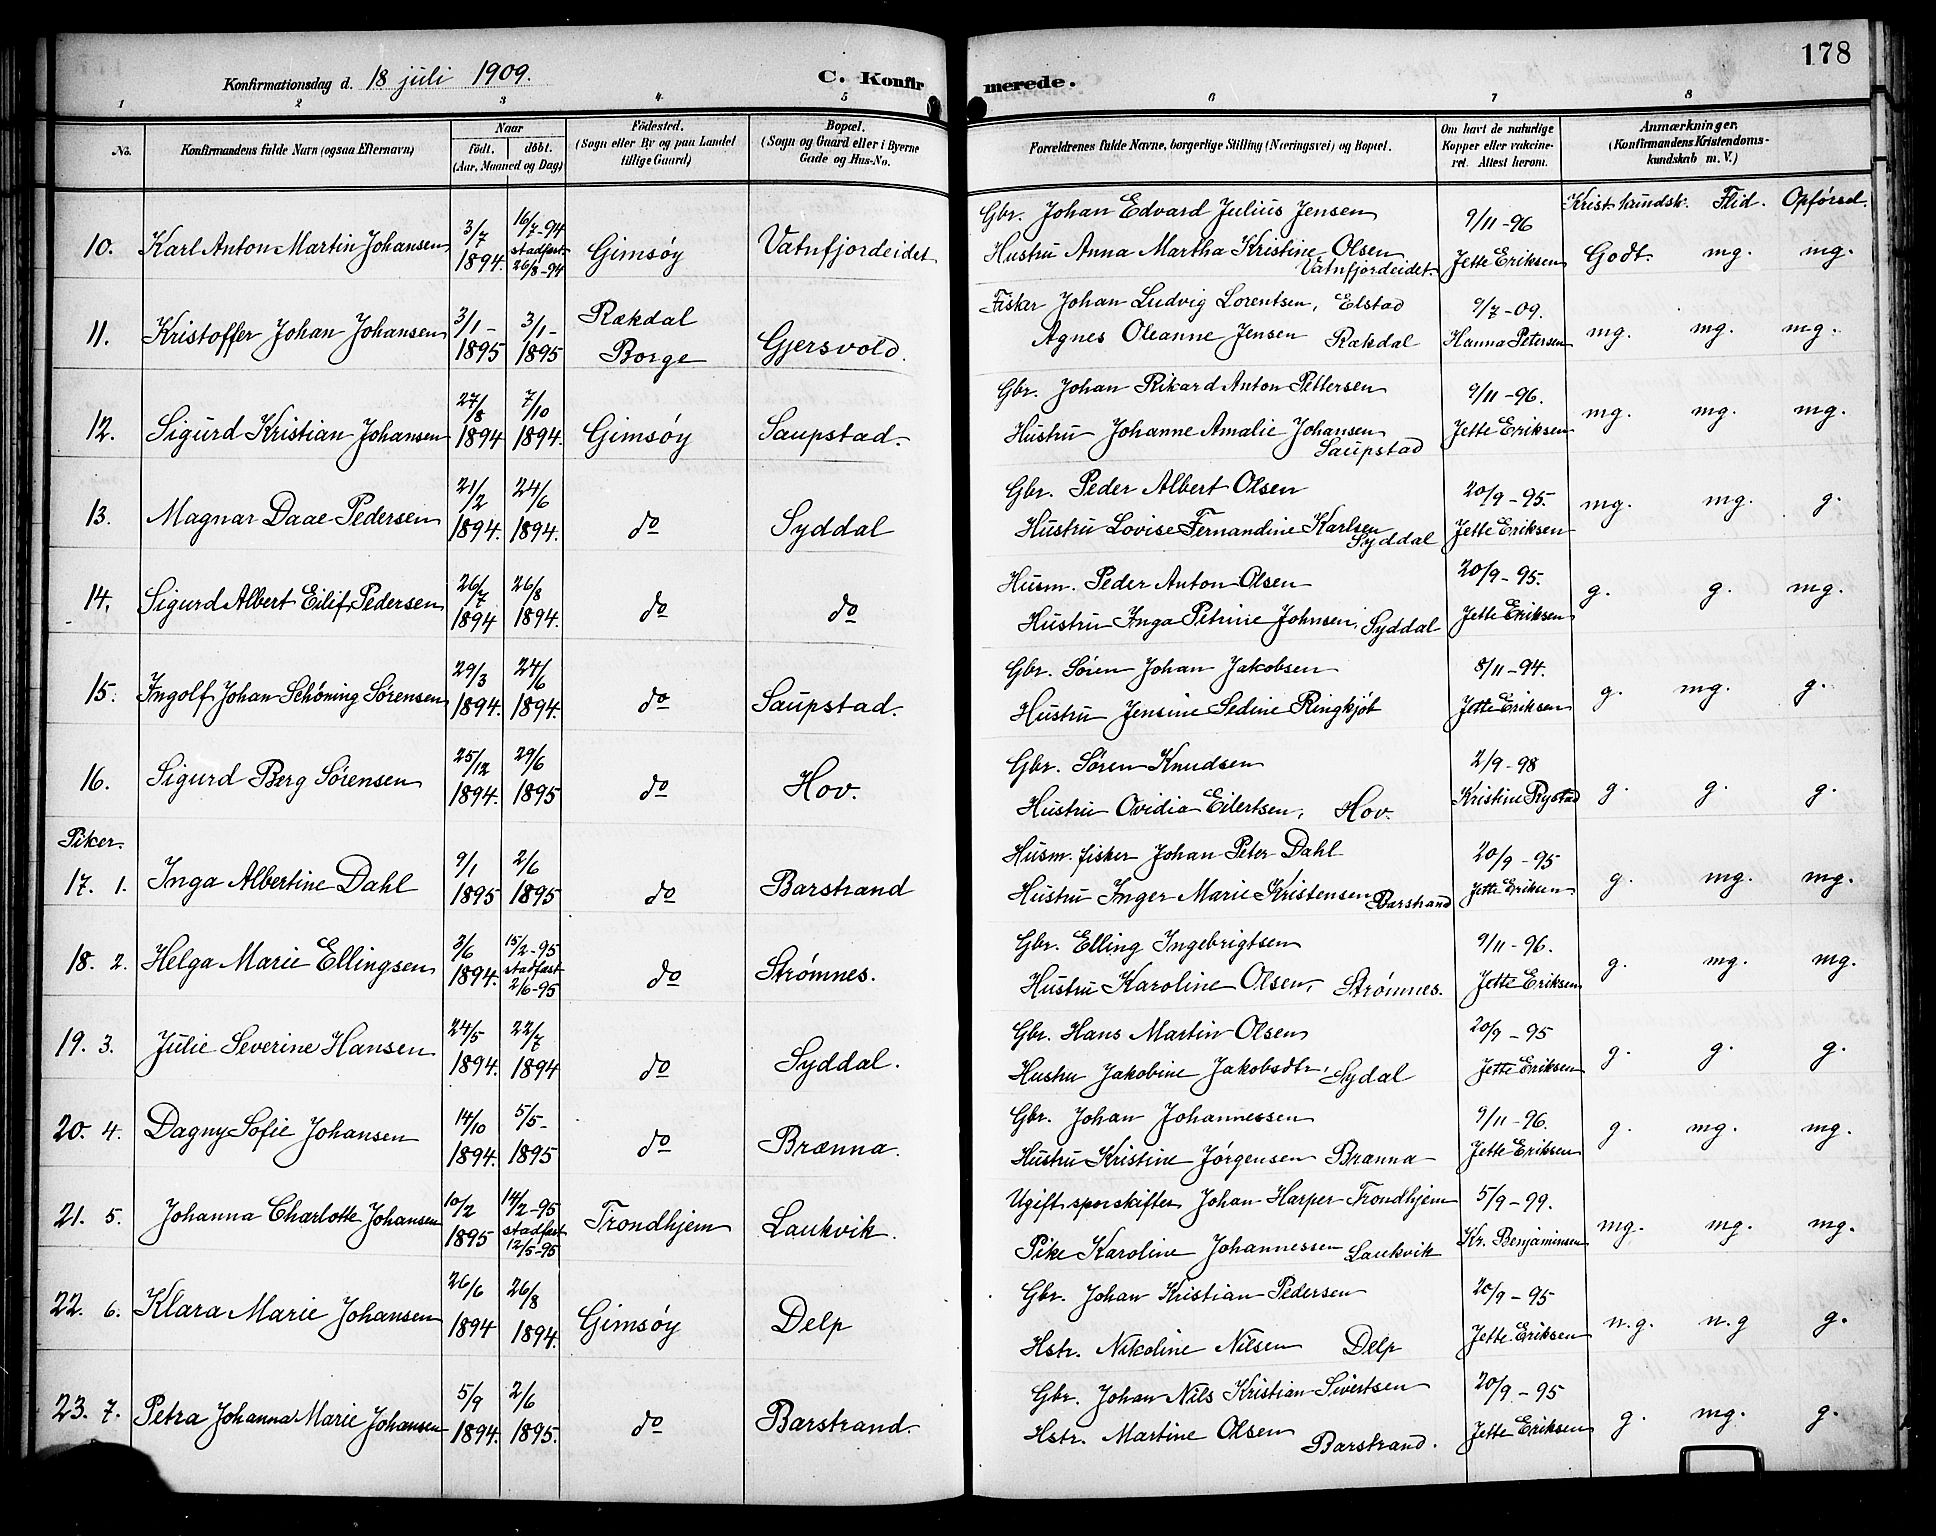 178
Konfirmationsdag d. 18 juli 1909. C. Konfirmerede.
1 2 3 4 5 6 7 8
No. Konfirmandens fulde Navn (ogsaa Efternavn) Naar født. døbt. (Aar, Maaned og Dag) Fødested. (Sogn eller By og paa Landet tillige Gaard) Bopæl. (Sogn og Gaard eller i Byerne Gade og Hus-No. Forældrenes fulde Navne, borgerlige Stilling (Næringsvei) og Bopæl. Om havt de naturlige Kopper eller vaccineret. Attest herom. Anmærkninger. (Konfirmandens Kristendomskundskab m. V.)
Krist. kundsk. Flid. Opførsel.
10. Karl Anton Martin Johansen 3/7 1894. 16/7-94 stadfast. 26/8-94 Gimsøy Vatnfjordeidet Gbr. Johan Edvard Julius Jensen Hustru Anna Martha Kristine Olsen Vatnfjordeidet. 9/11-96 Jette Eriksen Godt. mg. mg.
11. Kristoffer Johan Johansen 3/1- 1895 3/1- 1895 Rækdal Borge Gjersvold. Fisker Johan Ludvig Lorentsen, Elstad Agnes Oleanne Jensen Rækdal 9/7-09. Hanna Petersen mg. mg. mg.
12. Sigurd Kristian Johansen 27/8 1894 7/10 1894. Gimsøy Saupstad. Gbr. Johan Rikard Anton Pettersen Hustru Johanne Amalie Johansen Saupstad 9/11-96. Jette Eriksen mg. mg. mg.
13. Magnar Daae Pedersen 21/2 1894. 24/6 1894. do Syddal Gbr. Peder Albert Olsen Hustru Lovise Fernandine Karlsen Syddal 20/9-95. Jette Eriksen mg. mg. g.
14. Sigurd Albert Eilif Pedersen 26/7 1894 26/8 1894. do do Husm. Peder Anton Olsen Hustru Inga Petrine Johnsen, Syddal 20/9-95. Jette Eriksen g. g. mg.
15. Ingolf Johan Schøning Sørensen 29/3 1894. 24/6 1894. do Saupstad. Gbr. Søren Johan Jakobsen Hustru Jensine Sedine Ringkjøb 8/11-94. Jette Eriksen g. mg. g.
16. Sigurd Berg Sørensen 25/12 1894. 29/6 1895 do Hov. Gbr. Søren Knudsen Hustru Ovidia Eilertsen, Hov. 2/9-98 Kristine Rystad g. g. g.
Piker.
17. 1. Inga Albertine Dahl 9/1 1895 2/6 1895 do Barstrand Husm. fisker Johan Peter Dahl Hustru Inger Marie Kristensen Barstrand 20/9-95 Jette Eriksen g. mg. mg.
18. 2. Helga Marie Ellingsen 3/6 1894. 15/2-95 stadfast 2/6-95 do Strømnes. Gbr. Elling Ingebrigtsen Hustru Karoline Olsen, Strømnes. 9/11-96. Jette Eriksen g. mg. mg.
19. 3. Julie Severine Hansen 24/5 1894. 22/7 1894 do Syddal. Gbr. Hans Martin Olsen Hustru Jakobine Jakobsdtr, Sydal 20/9-95 Jette Eriksen g. g. g.
20. 4. Dagny Sofie Johansen 14/10 1894. 5/5- 1895 do Brænna. Gbr. Johan Johannessen Hustru Kristine Jørgensen Brænna 9/11-96. Jette Eriksen g. mg. mg.
21. 5. Johanna Charlotte Johansen 10/2 1895 14/2-95 stadfast 12/5-95 Trondhjem Laukvik. Ugift sporskifter Johan Harper Trondhjem Pike Karoline Johannessen Laukvik 5/9-99. Kr. Benjaminsen mg. mg. mg.
22. 6. Klara Marie Johansen 26/6 1894 26/8 1894. Gimsøy Delp Gbr. Johan Kristian Pedersen Hstr. Nikoline Nilsen Delp 20/9-95 Jette Eriksen n.g. n.g g.
23. 7. Petra Johanna Marie Johansen 5/9 1894. 2/6 1895. do Barstrand. Gbr. Johan Nils Kristian Sivertsen Hstr. Martine Olsen Barstrand. 20/9-95 Jette Eriksen g. mg. g.